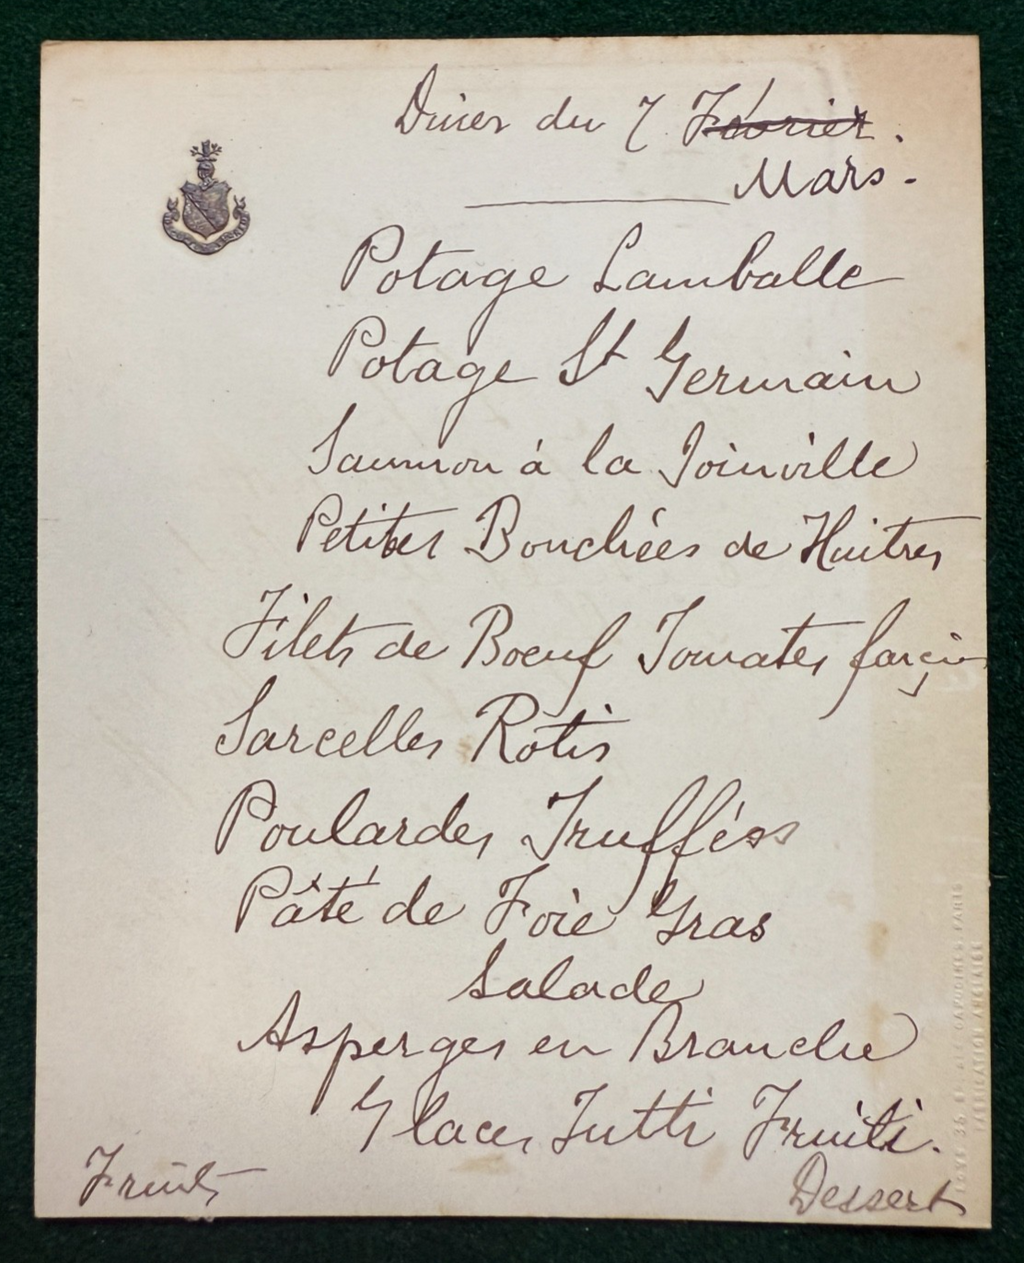 Diner du 7 Février.
Mars.
Potage Lamballe
Potage St Germain
Saumon à la Joinville
Petites Bouchées de Huitres
Filets de Boeuf Tomates farçies
Sarcelles Rotis
Poulardes Trufféss
Pâté de Foie Gras
Salade
Asperges en Branche
Glaces Tutti Fruiti.
Fruits
Dessert
36, BD DES CAPUCINES, PARIS
FABRICATION ANGLAISE